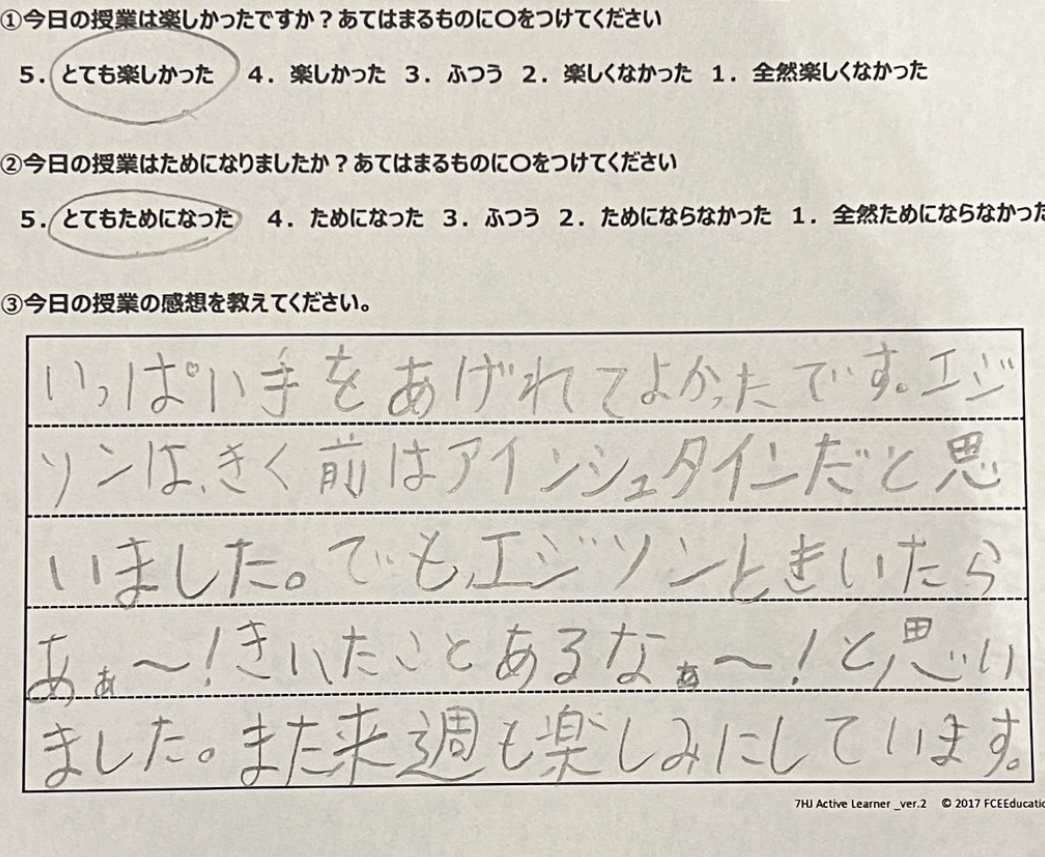 ①今日の授業は楽しかったですか？あてはまるものに〇をつけてください
5．とても楽しかった 4．楽しかった 3．ふつう 2．楽しくなかった 1．全然楽しくなかった
②今日の授業はためになりましたか？あてはまるものに〇をつけてください
5．とてもためになった 4．ためになった 3．ふつう 2．ためにならなかった 1．全然ためにならなかった
③今日の授業の感想を教えてください。
いっぱい手をあげれてよかったです。エジ
ソンは、きく前はアインシュタインだと思
いました。でも、エジソンときいたら
あぁ〜！きいたことあるなぁ〜！と思い
ました。また来週も楽しみにしています。
7HJ Active Learner _ver.2 © 2017 FCEEducatio